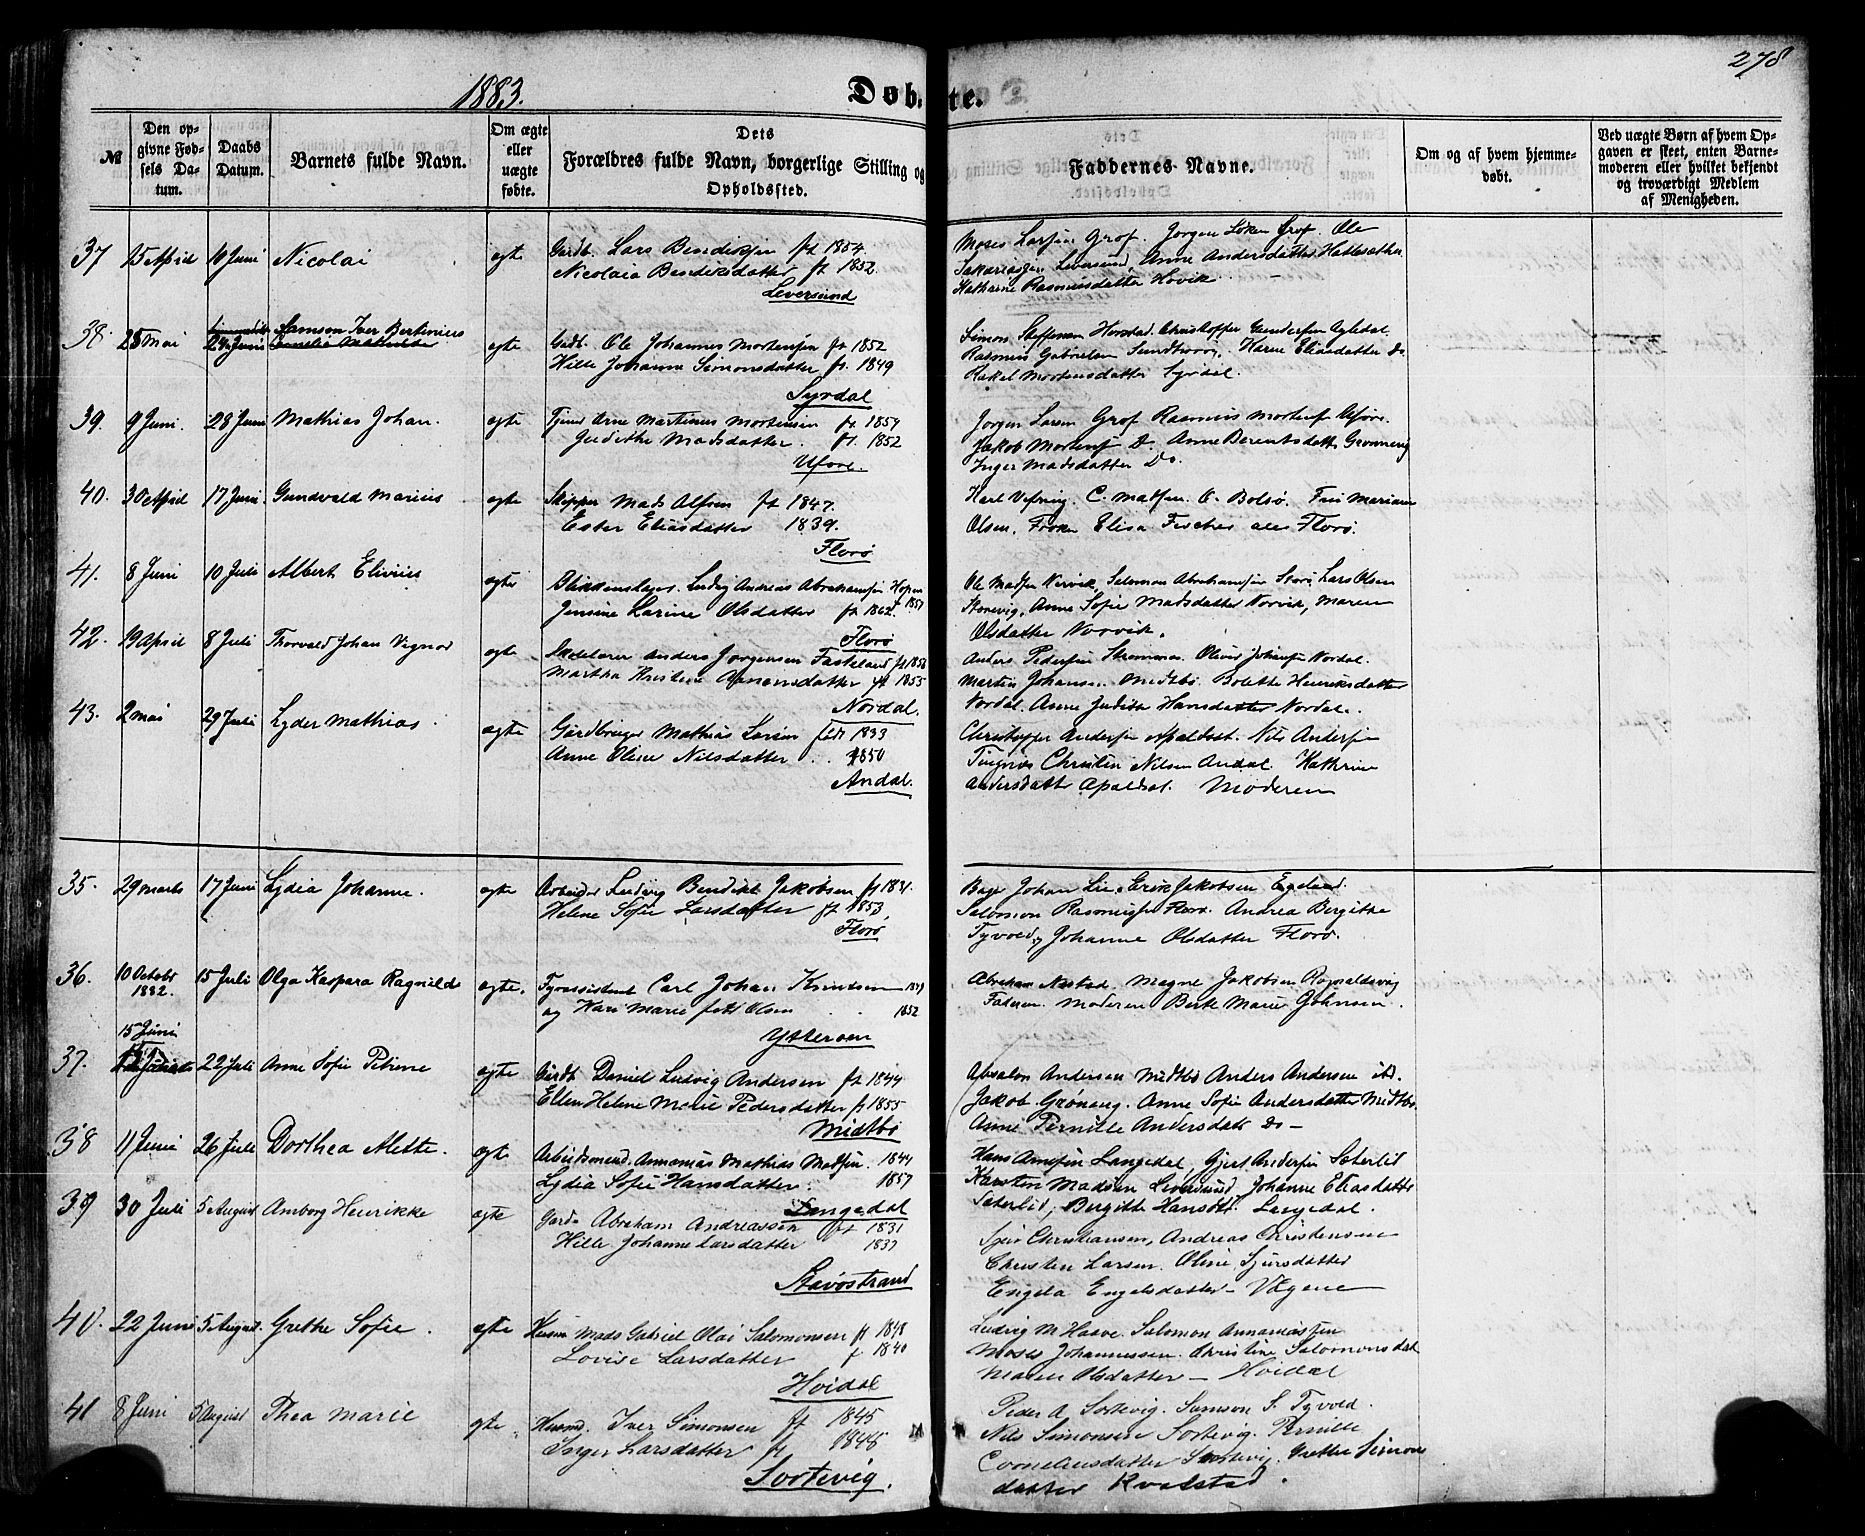 278
1883.
Døbte.
№
Den opgivne Fødsels Datum.
Daabs Datum.
Barnets fulde Navn.
Om ægte eller uægte fødte.
Dets Forældres fulde Navn, borgerlige Stilling og Opholdssted.
Faddernes Navne.
Om og af hvem hjemmedøbt.
Ved uægte Børn af hvem Opgaven er skeet, enten Barnemoderen eller hvilket bekjendt og troværdigt Medlem af Menigheden.
37 15 April 10 Juni Nicolai ægte Gardb. Lars Bendiksen ft 1854
Nicolaia Bendiksdatter ft 1852.
Leversund
Moses Larsen Grof. Jørgen Løken Grof. Ole
Sakariassen Leversund, Anne Andersdatter Hattesæther
Kathrine Rasmusdatter Hovik
38. 25 Mai 24 Juni Samson Iver Bertinius
ægte Gardb. Ole Johannes Mortensen ft 1852
Hille Johanne Simonsdatter ft. 1849
Syrdal
Simon Steffensen Horstad. Christoffer Gundersen
Rasmus Gabrielsen Sundtvaag, Karen Eliasdatter Do
Rakel Mortensdatter Syrdal.
39. 9 Juni. 28 Juni Mathias Johan. ægte Tjener Arne Martinus Mortensen ft. 1859
Judithe Madsdatter. ft. 1852
Uføre.
Jørgen Larsen Grof Rasmus Mortens Uføre.
Jakob Mortens D. Anne Berentsdatt Grønneng
Inger Madsdatter Do.
40. 30 April 17 Juni Gundvald Marius ægte Skipper Mads Alfsen ft 1847.
Ester Eliasdatter 1839.
Florø
Karl Vefring. C. Madsen. O. Bolsø. Fru Mariane
Olsen. Frøken Elisa Fischer alle Florø.
41. 8 Juni 10 Juli Albert Elivius ægte Blikkenslager. Ludvig Andreas Abrahamsen f 1857
Jensine Larine Olsdatter ft 1862.
Florø
Ole Madsen Norvik, Salomon Abrahamsen Lars Olsen
Anne Sofie Madsdatter Norvik, Maren
Olsdatter Norvik.
42. 19 April 8 Juli Thorvald Johan Vignor ægte Skolelærer Anders Jørgensen Fasteland ft 1856
Martha Kristine ft 1855
Nordal.
Anders Pedersen Strømmen. Oliver Johansen Nordal.
Martin Johansen Midtbø. Bolette Henriksdatter
Nordal. Anne Judith Hansdatter Nordal.
43. 2 Mai 29 Juli Lyder Mathias. ægte Gårdbruger Mathias Larsen født 1833
Anne Oline Nilsdatter. . 1850
Andal.
Christoffer Andersen Apaldset. Nils Andersen
Christen Nilsen Andal. Kathrine
Andersdatter Apaldset. Moderen
35. 29 Marts 17 Juni Lydia Johanne. ægte Arbeider Ludvig Bendikt Jakobsen ft 1831.
Helene Sofie Larsdatter ft 1853.
Florø
Bager Johan Lie, Erik Jakobsen Egeland.
Salomon Rasmussen Florø. Andrea Bergithe
Tyvold, Johanne Olsdatter Florø.
36. 10 Octobr 1882. 15 Juli Olga Kaspara Ragnilda ægte. Fyrassistent Carl Johan Knudsen
og Hans Marie født Olsen 1852
Ytterøen
Abraham Nastad. Magne Jakobsen Rognaldsvåg
Faderen. Moderen Berte Marie Johnsen.
37. 15 Juni 22 Juli Anne Sofie Petrine ægte Gardb. Daniel Ludvig Andersen ft 1844
Ellen Helene Marie Pedersdatter ft 1855
Midtbø
Absalon Andersen Midtbø Anders Andersen ibd.
Jakob Grøneng. Anne Sofie Andersdatter Midtbø.
Anne Pernille Andersdatt do —
38 11 Juni 26 Juli Dorthea Alette. ægte Arbeidsmand. Annanias Mathias Madsen. 1844
Lydia Sofie Hansdatter. 1857
Langedal
Hans Arnesen Langedal, Gjert Andersen Sæterlid
Karsten Madsen Leversund, Johanne Eliasdatter
Sæterlid, Bergitte Hansdtt. Langedal.
39 30 Juli 5 August Amborg Henrikke ægte Gardb Abraham Andreassen ft 1831
Hille Johanne Larsdatter 1837
Stavøstrand
Sjur Christiansen, Andreas Christensen
Christen Larsen. Oline Sjursdatter
Engela Engelsdatter — Vægene
40. 22 Juni 5 August. Grethe Sofie. ægte Husm Mads Gabriel Olai Salomonsen ft 1848
Lovise Larsdatter f 1840
Hvidal
Ludvig M Haave. Salomon Annaniassen
Moses Johannessen. Christine Salomonsdat
Maren Olsdatter — Hvidal
41 8 Juni 5 August Thea Marie ægte. Husmd. Iver Simonsen ft 1845
Inger Larsdatter ft 1848
Sortevig.
Peder A Sortevig. Samson S. Tyvold.
Nils Simonsen Sortevig. Pernille
Corneliusdatter Sortevig, Grethe Simons
datter Kvalstad.